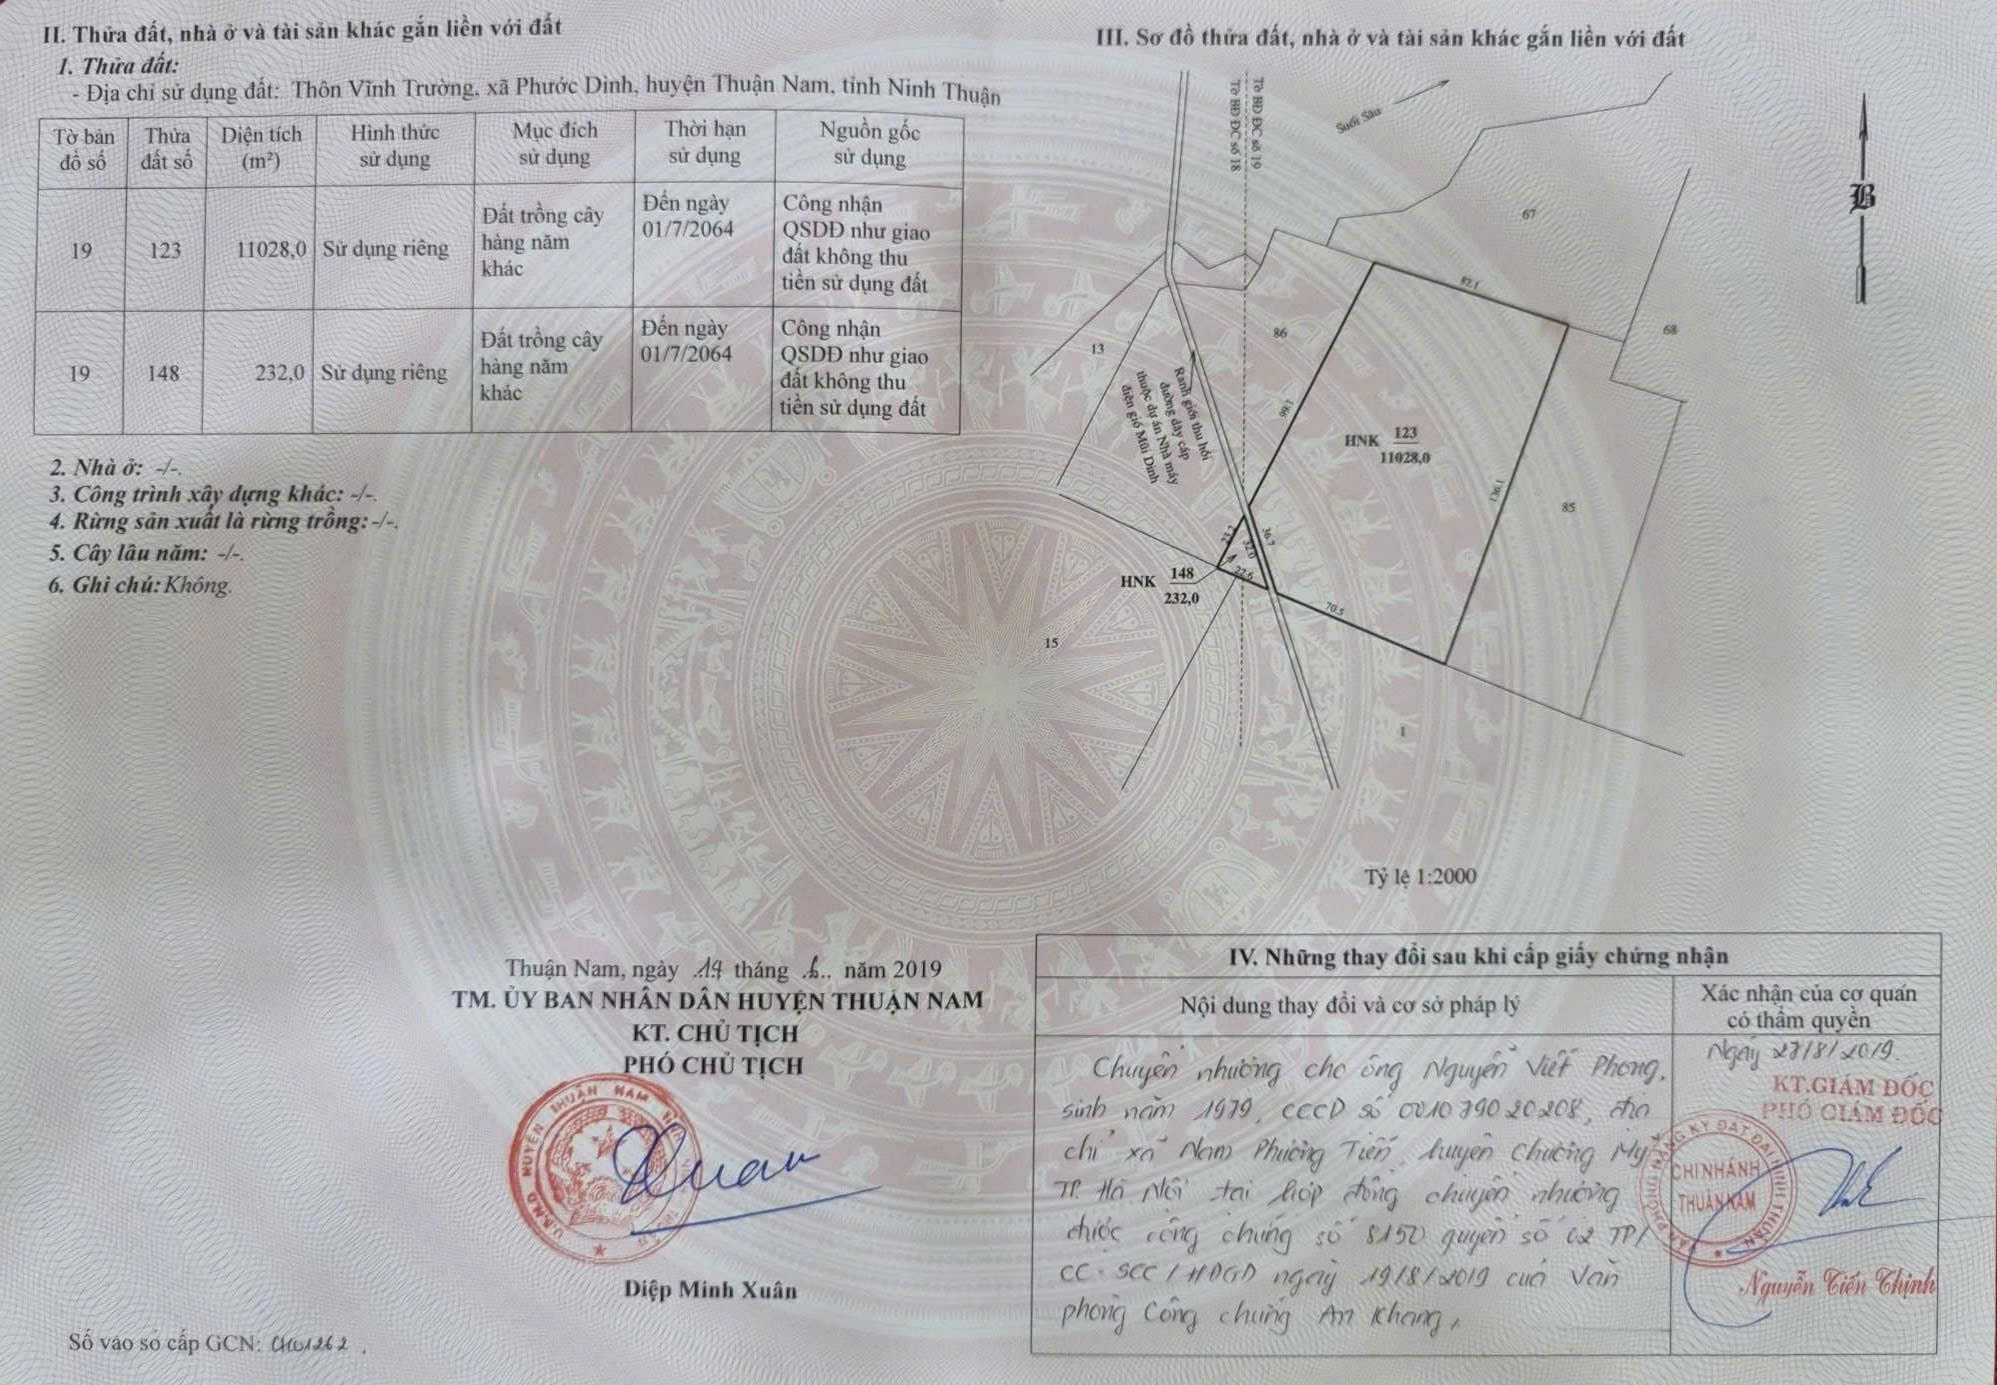 II. Thửa đất, nhà ở và tài sản khác gắn liền với đất
1. Thửa đất:
- Địa chỉ sử dụng đất: Thôn Vĩnh Trường, xã Phước Dinh, huyện Thuận Nam, tỉnh Ninh Thuận
Tờ bản đồ số
Thửa đất số
Diện tích (m²)
Hình thức sử dụng
Mục đích sử dụng
Thời hạn sử dụng
Nguồn gốc sử dụng
19
123
11028,0
Sử dụng riêng
Đất trồng cây hàng năm khác
Đến ngày 01/7/2064
Công nhận QSDĐ như giao đất không thu tiền sử dụng đất
19
148
232,0
Sử dụng riêng
Đất trồng cây hàng năm khác
Đến ngày 01/7/2064
Công nhận QSDĐ như giao đất không thu tiền sử dụng đất
2. Nhà ở: -/-.
3. Công trình xây dựng khác: -/-.
4. Rừng sản xuất là rừng trồng: -/-.
5. Cây lâu năm: -/-.
6. Ghi chú: Không.
III. Sơ đồ thửa đất, nhà ở và tài sản khác gắn liền với đất
Tờ BĐ ĐC số 18
Tờ BĐ ĐC số 19
Suối Sâu
B
67
68
82.1
86
13
Ranh giới thu hồi
đường dây cáp
thuộc dự án Nhà máy
điện gió Mũi Dinh
99.1
HNK 123
11028,0
136.1
85
23.2
32.0
36.7
22.6
HNK 148
232,0
70.5
15
1
Tỷ lệ 1:2000
Thuận Nam, ngày 19 tháng 6 năm 2019
TM. ỦY BAN NHÂN DÂN HUYỆN THUẬN NAM
KT. CHỦ TỊCH
PHÓ CHỦ TỊCH
U.B.N.D HUYỆN THUẬN NAM
Diệp Minh Xuân
Số vào sổ cấp GCN: CH01262
IV. Những thay đổi sau khi cấp giấy chứng nhận
Nội dung thay đổi và cơ sở pháp lý
Xác nhận của cơ quan có thẩm quyền
Chuyển nhượng cho ông Nguyễn Viết Phong,
sinh năm 1979, CCCD số 001079020208, địa
chỉ xã Nam Phương Tiến, huyện Chương Mỹ
TP. Hà Nội tại hợp đồng chuyển nhượng
được công chứng số 8150 quyển số 02 TP/
CC-SCC/HĐGD ngày 19/8/2019 của Văn
phòng Công chứng An Khang,
Ngày 27/8/2019.
KT.GIÁM ĐỐC
PHÓ GIÁM ĐỐC
CHI NHÁNH
THUẬN NAM
Nguyễn Tiến Thịnh